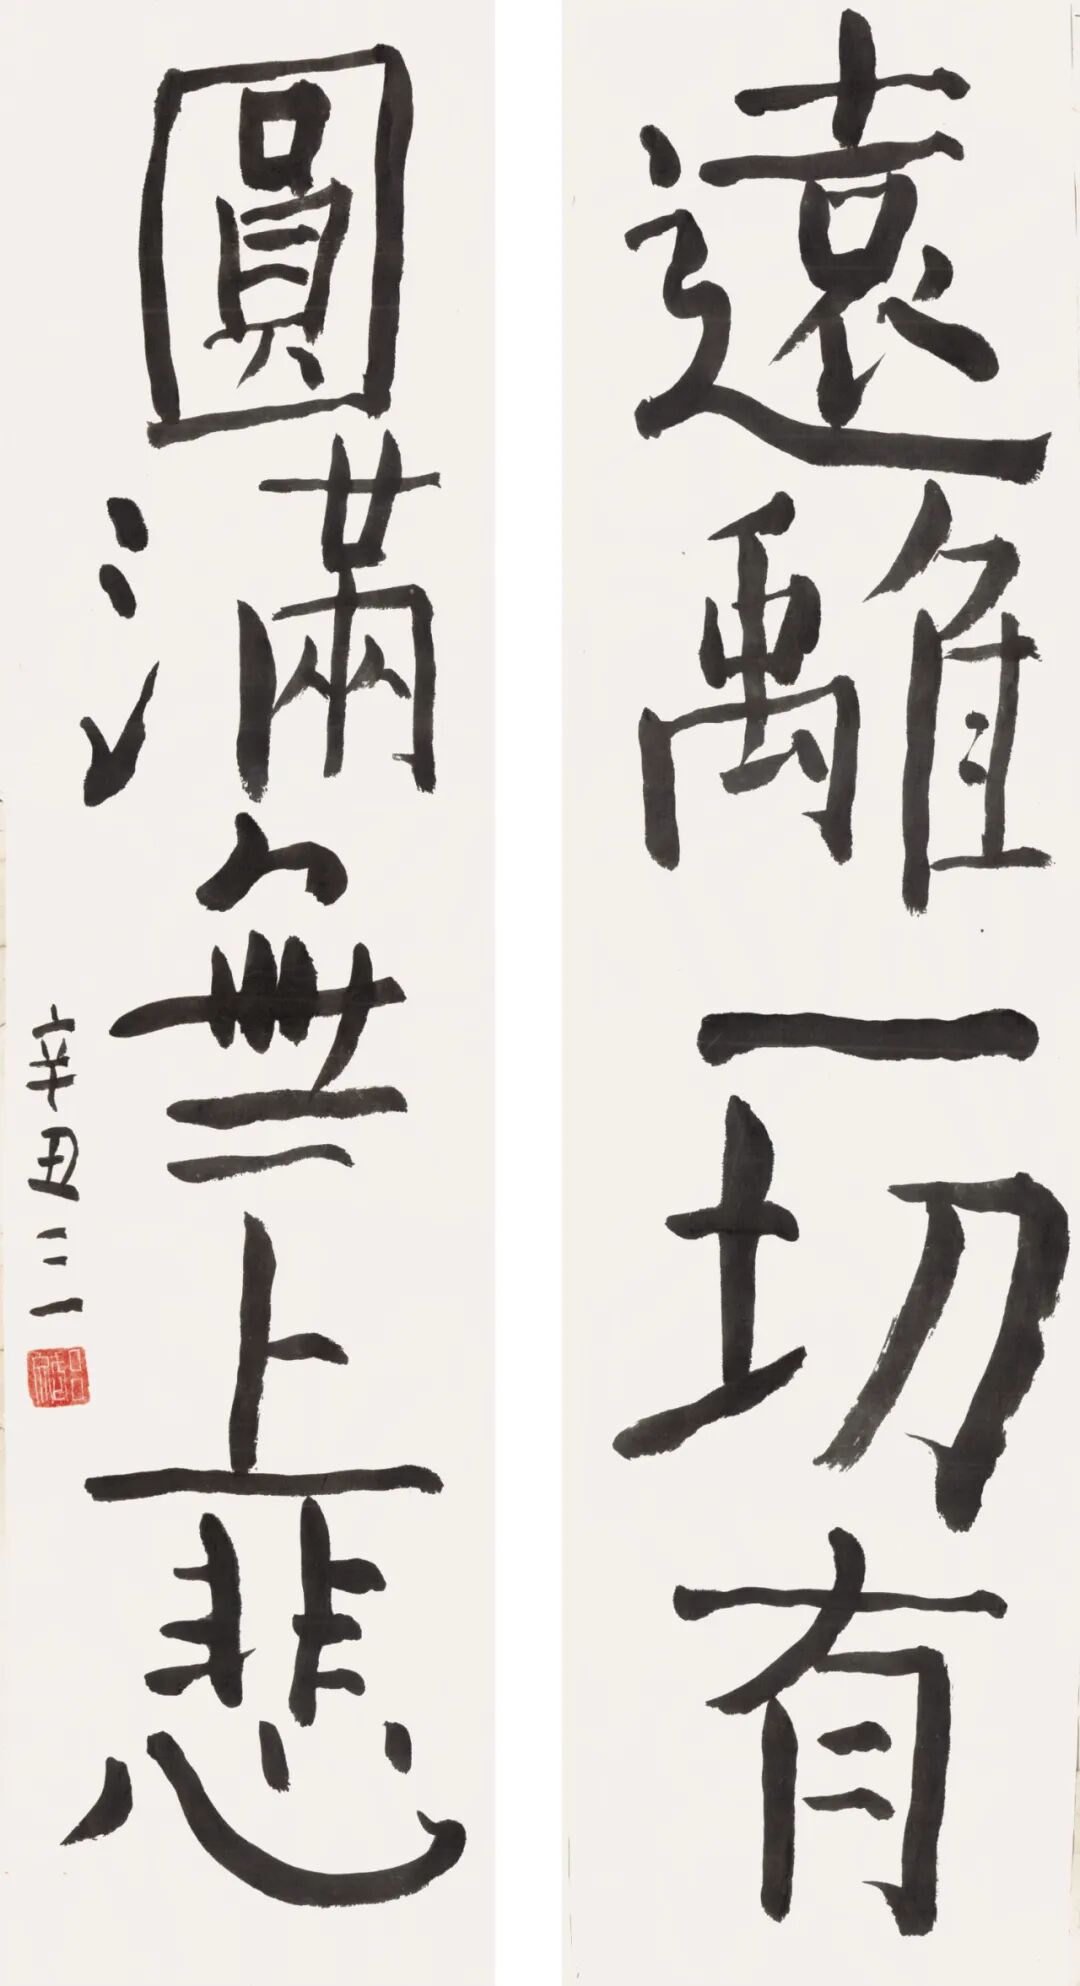 遠離一切有
圓滿無上悲
辛丑 三一